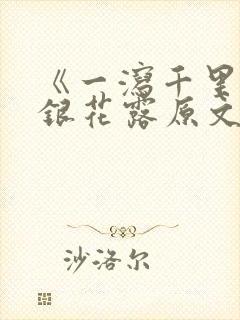 《一泻千里
银花露原文
沙洛尔